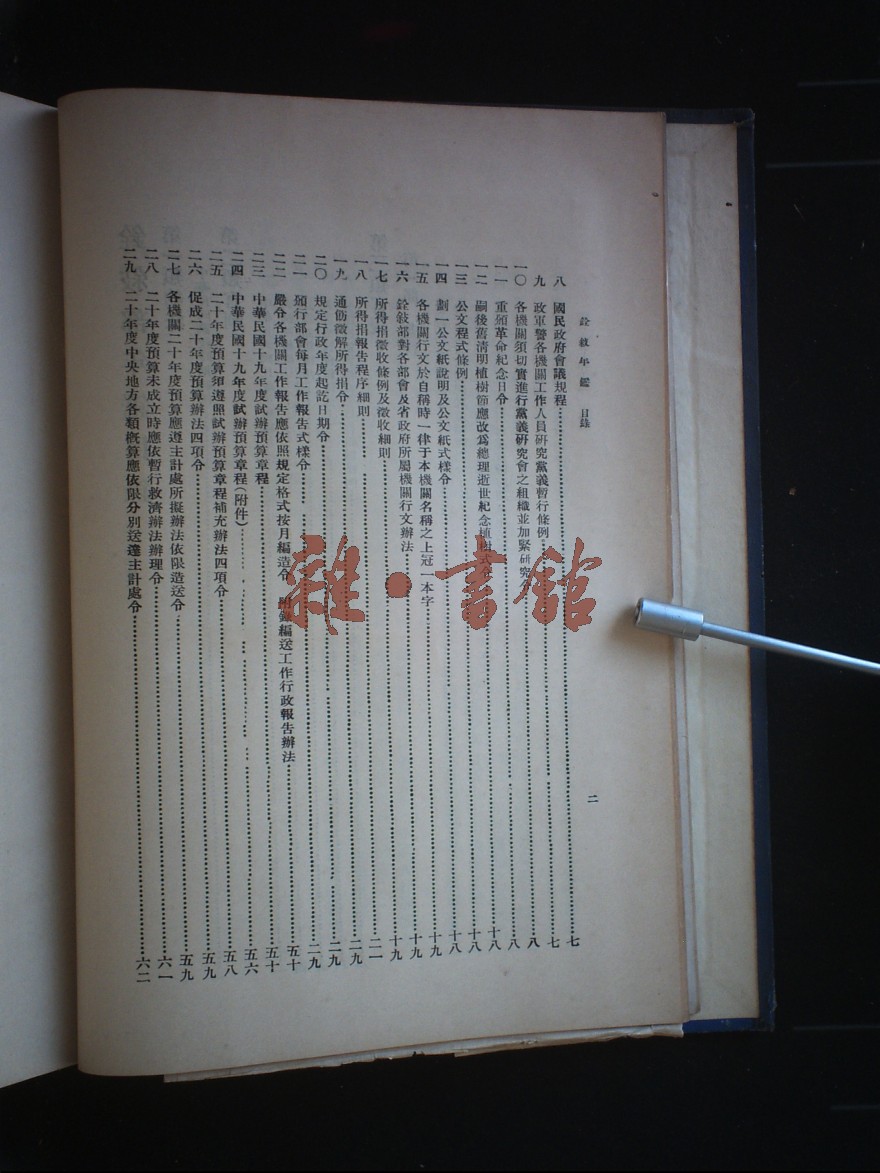 銓敍年鑑 目錄
二
八 國民政府會議規程⋯⋯七
九 政軍警各機關工作人員研究黨義暫行條例⋯⋯七
一〇 各機關須切實進行黨義研究會之組織並加緊研究令⋯⋯八
一一 重頒革命紀念日令⋯⋯八
一二 嗣後舊清明植樹節應改爲總理逝世紀念植樹式令⋯⋯十八
一三 公文程式條例⋯⋯十八
一四 劃一公文紙說明及公文紙式樣令⋯⋯十八
一五 各機關行文於自稱時一律于本機關名稱之上冠一本字⋯⋯十九
一六 銓敍部對各部會及省政府所屬機關行文辦法⋯⋯十九
一七 所得捐徵收條例及徵收細則⋯⋯十九
一八 所得捐報告程序細則⋯⋯二一
一九 通飭徵解所得捐令⋯⋯二九
二〇 規定行政年度起訖日期令⋯⋯二九
二一 頒行部會每月工作報告式樣令⋯⋯二九
二二 嚴令各機關工作報告應依照規定格式按月編造令 附錄編送工作行政報告辦法⋯⋯五十
二三 中華民國十九年度試辦預算章程⋯⋯五十
二四 中華民國十九年度試辦預算章程(附件)⋯⋯五六
二五 二十年度預算須遵照試辦預算章程補充辦法四項令⋯⋯五八
二六 促成二十年度預算辦法四項令⋯⋯五九
二七 各機關二十年度預算應遵主計處所擬辦法依限造送令⋯⋯五九
二八 二十年度預算未成立時應依暫行救濟辦法辦理令⋯⋯六一
二九 二十年度中央地方各類概算應依限分別送達主計處令⋯⋯六二
雜·書館